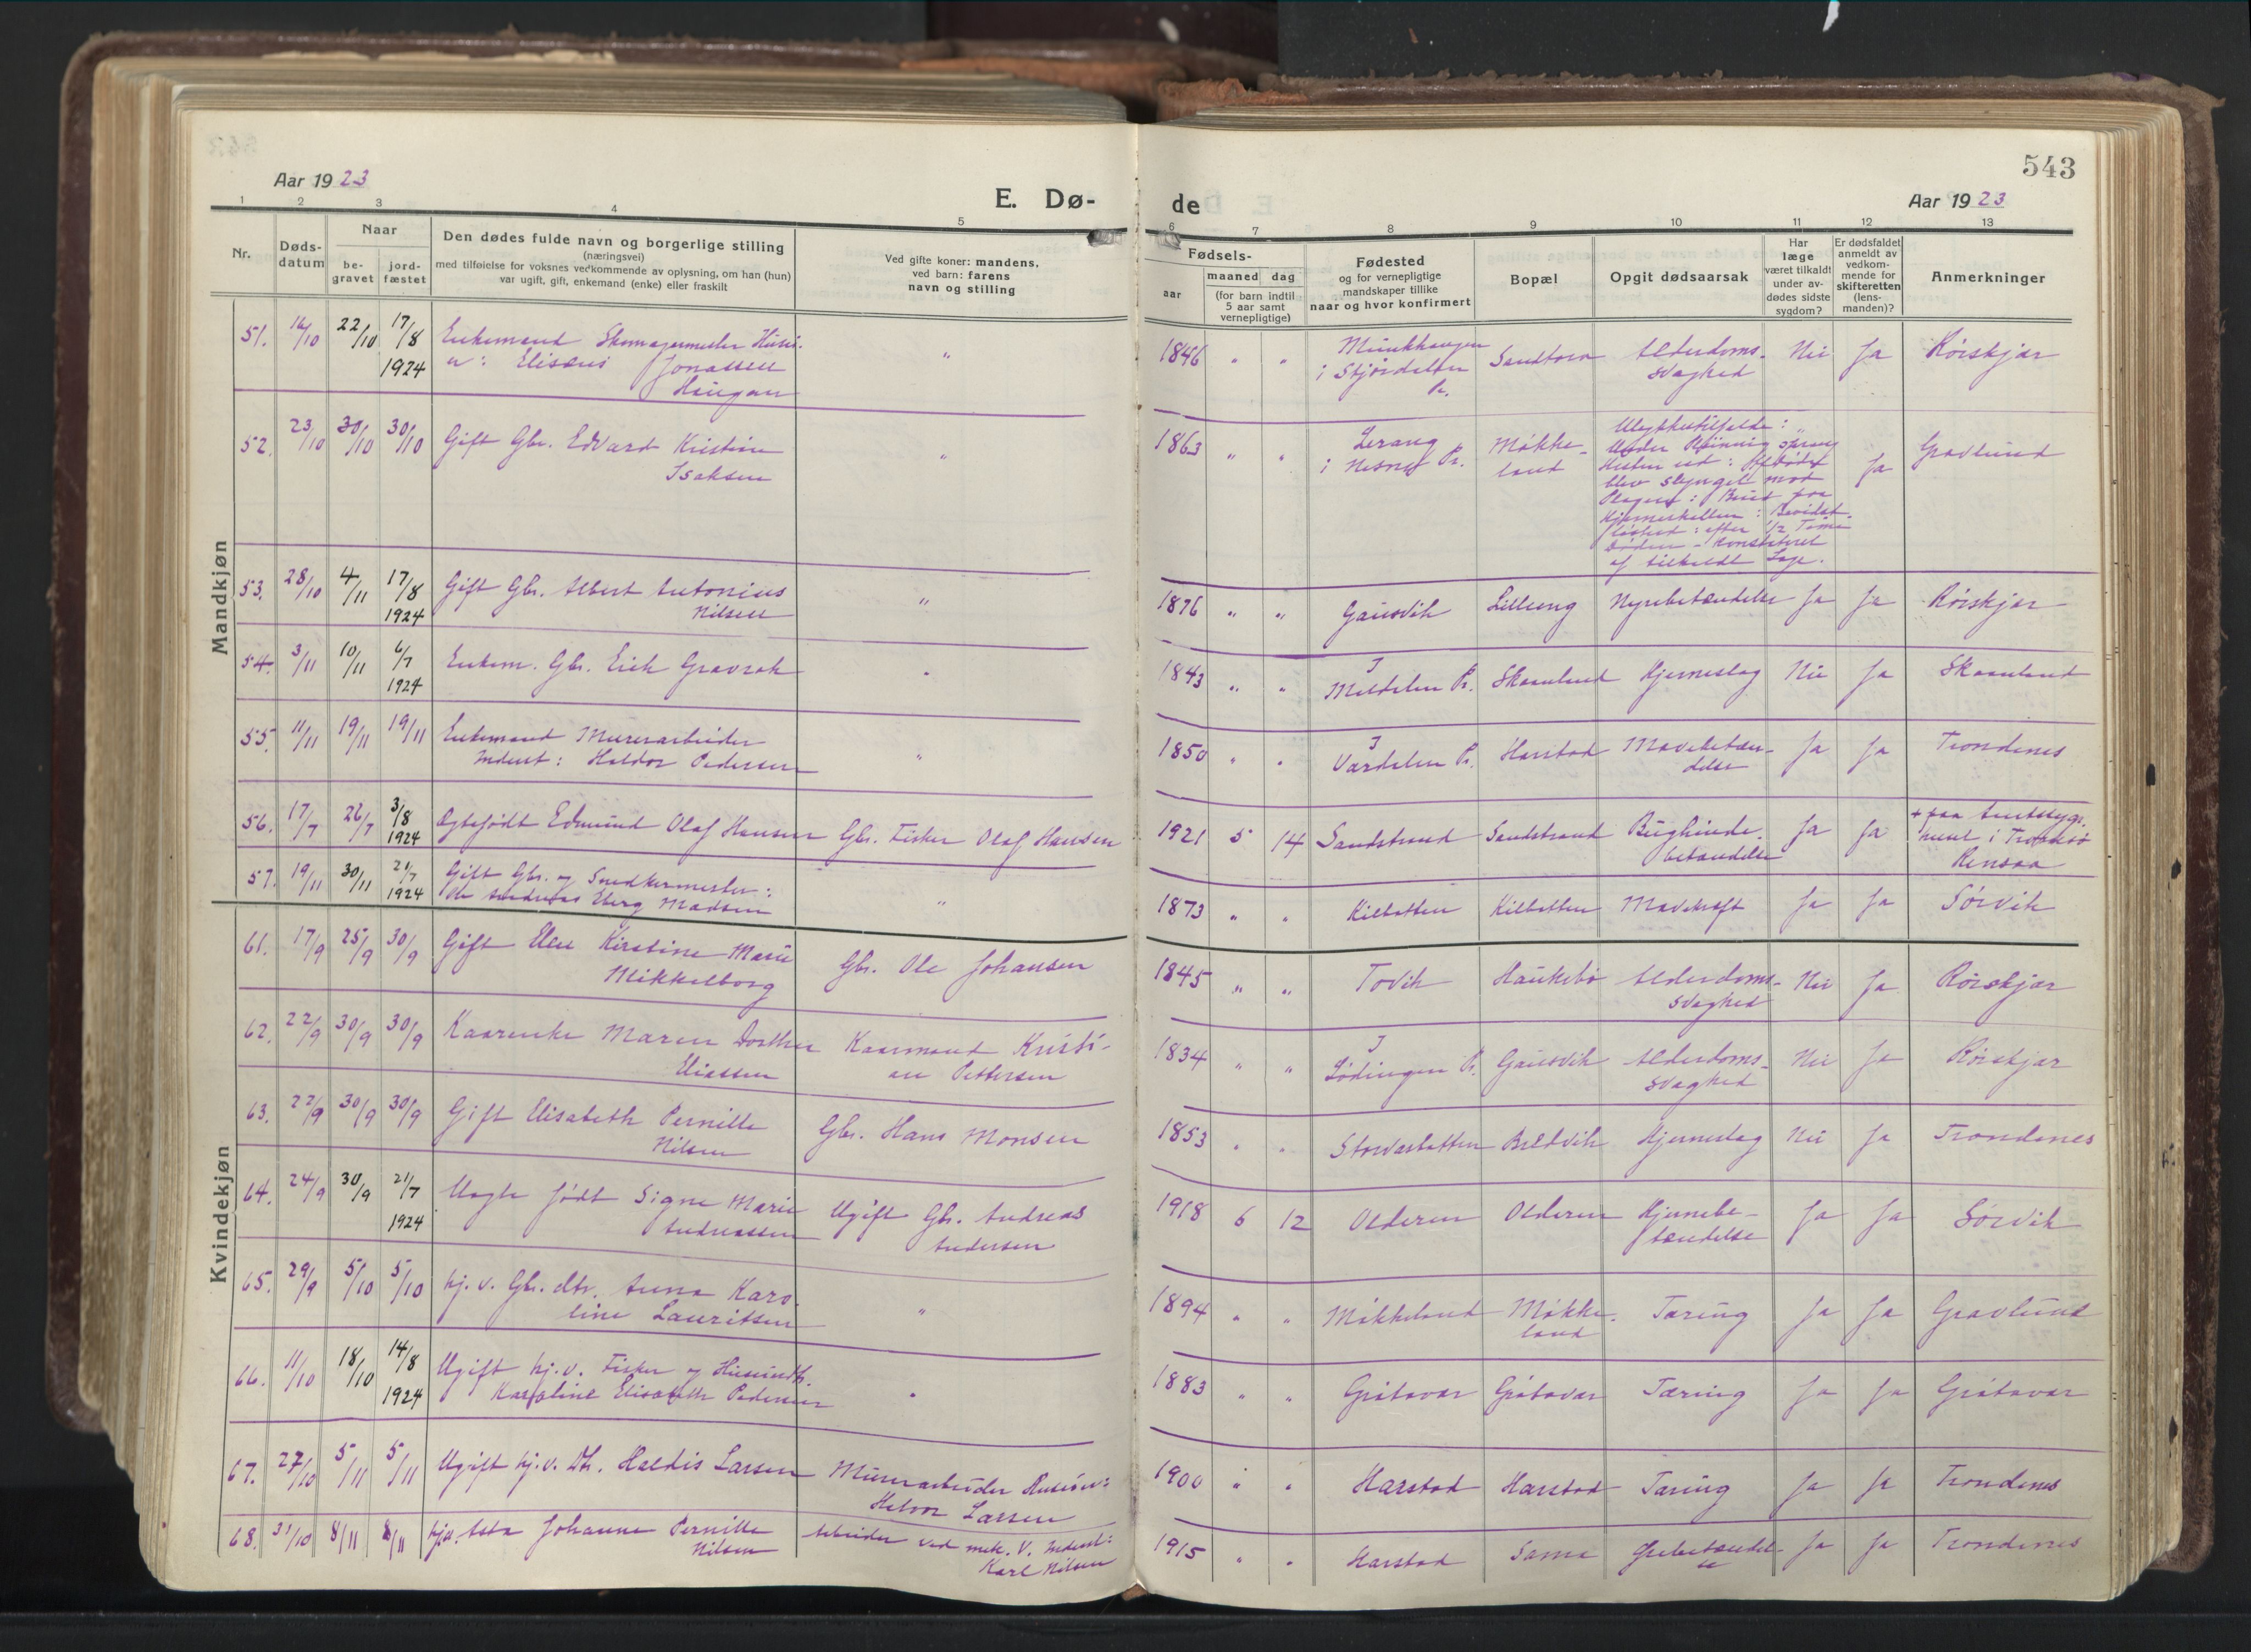 543
Aar 1923
E. Dø-
de
Aar 1923
1 2 3 4 5 6 7 8 9 10 11 12 13
Nr.
Døds-
datum
Naar
be-
gravet
jord-
fæstet
Den dødes fulde navn og borgerlige stilling
(næringsvei)
med tilføielse for voksnes vedkommende av oplysning, om han (hun)
var ugift, gift, enkemand (enke) eller fraskilt
Ved gifte koner: mandens,
ved barn: farens
navn og stilling
Fødsels-
aar
maaned dag
(for barn indtil
5 aar samt
vernepligtige)
Fødested
og for vernepligtige
mandskaper tillike
naar og hvor konfirmert
Bopæl
Opgit dødsaarsak
Har
læge
været tilkaldt
under av-
dødes sidste
sygdom?
Er dødsfaldet
anmeldt av
vedkom-
mende for
skifteretten
(lens-
manden)?
Anmerkninger
Mandkjøn
51. 16/10 22/10 17/8 1924 Enkemand Skomagermester Husei-
er: Elisæus Jonassen
Haugan " 1846 " " Munkhaugen
i Stjørdalen
Pr. Sandtorv Alderdoms-
svaghed Nei Ja Rørskjær
52. 23/10 30/10 30/10 Gift Gbr. Edvard Kristian
Isaksen " 1863 " " Lerang
i Nesne Pr. Møkke-
land Ulykkestilfælde:
Under Kjøring sprang
Hesten ud: Afdøde
blev slynget mod
: Brud paa
Hjerneskallen: Bevidst-
løshed: efter 1/2 Time
Døden - konstateret
af tilkaldt Læge. Ja Gravlund
53. 28/10 4/11 17/8 1924 Gift Gbr. Albert Antonius
Nilsen " 1876 " " Gausvik Lilleng Nyrebetændelse Ja Ja Rørskjær
54. 3/11 10/11 6/7 1924 Enkem. Gbr. Erik Gravrok " 1843 " " I
Meldalen Pr. Skaanland Hjerneslag Nei Ja Skaanland
55. 11/11 19/11 19/11 Enkemand Murerarbeider
Inderst: Haldor Pedersen " 1850 " " I
Værdalen Pr. Harstad Mavebetæn-
delse Ja Ja Trondenes
56. 17/7 26/7 3/8 1924 Ægtefødt Edmund Olaf Hansen Gbr. Fisker Olaf Hansen 1921 5 14 Sandstrand Sandstrand Bughinde-
betændelse Ja Ja + paa Amtssyge-
huset i Tromsø
Rensaa
57. 19/11 30/11 21/7 1924 Gift Gbr. og Snedkermester:
Ole Andreas Eberg Madsen " 1873 " " Kilbotten Kilbotten Mavekræft Ja Ja Sørvik
Kvindekjøn
61. 17/9 25/9 30/9 Gift Elen Kirstine Marie
Mikkelborg Gbr. Ole Johansen 1845 " " Tovik Haukebø Alderdoms-
svaghed Nei Ja Rørskjær
62. 22/9 30/9 30/9 Kaarenke Maren Dorthea
Eliassen Kaarmand Kristi-
an Pettersen 1834 " " I
Lødingen Pr. Gausvik Alderdoms-
svaghed Nei Ja Rørskjær
63. 22/9 30/9 30/9 Gift Elisabeth Pernille
Nilsen Gbr. Hans Monsen 1853 " " Storvasbotten Breivik Hjerneslag Nei Ja Trondenes
64. 24/9 30/9 21/7 1924 Uægte født Signe Marie
Andreassen Ugift Gbr. Andreas
Andersen 1918 6 12 Olderen Olderen Hjernebe-
tændelse Ja Ja Sørvik
65. 29/9 5/10 5/10 hj. v. Gbr. dtr. Anna Karo-
line Lauritsen " 1894 " " Møkkeland Møkke-
land Tæring Ja Ja Gravlund
66. 11/10 18/10 14/8 1924 Ugift hj.v. Fisker og
Karoline Elisabeth Pedersen " 1883 " " Grøtavær Grøtavær Tæring Ja Ja Grøtavær
67. 27/10 5/11 5/11 Ugift hj.v. Dtr. Haldis Larsen Murerarbeider Huseier:
Larsen 1900 " " Harstad Harstad Tæring Ja Ja Trondenes
68. 31/10 8/11 8/11 hjv. Asta Johanne Pernille
Nilsen Arbeider ved mek. V. Inderst:
Karl Nilsen 1915 " " Harstad Sama Ja Ja Trondenes